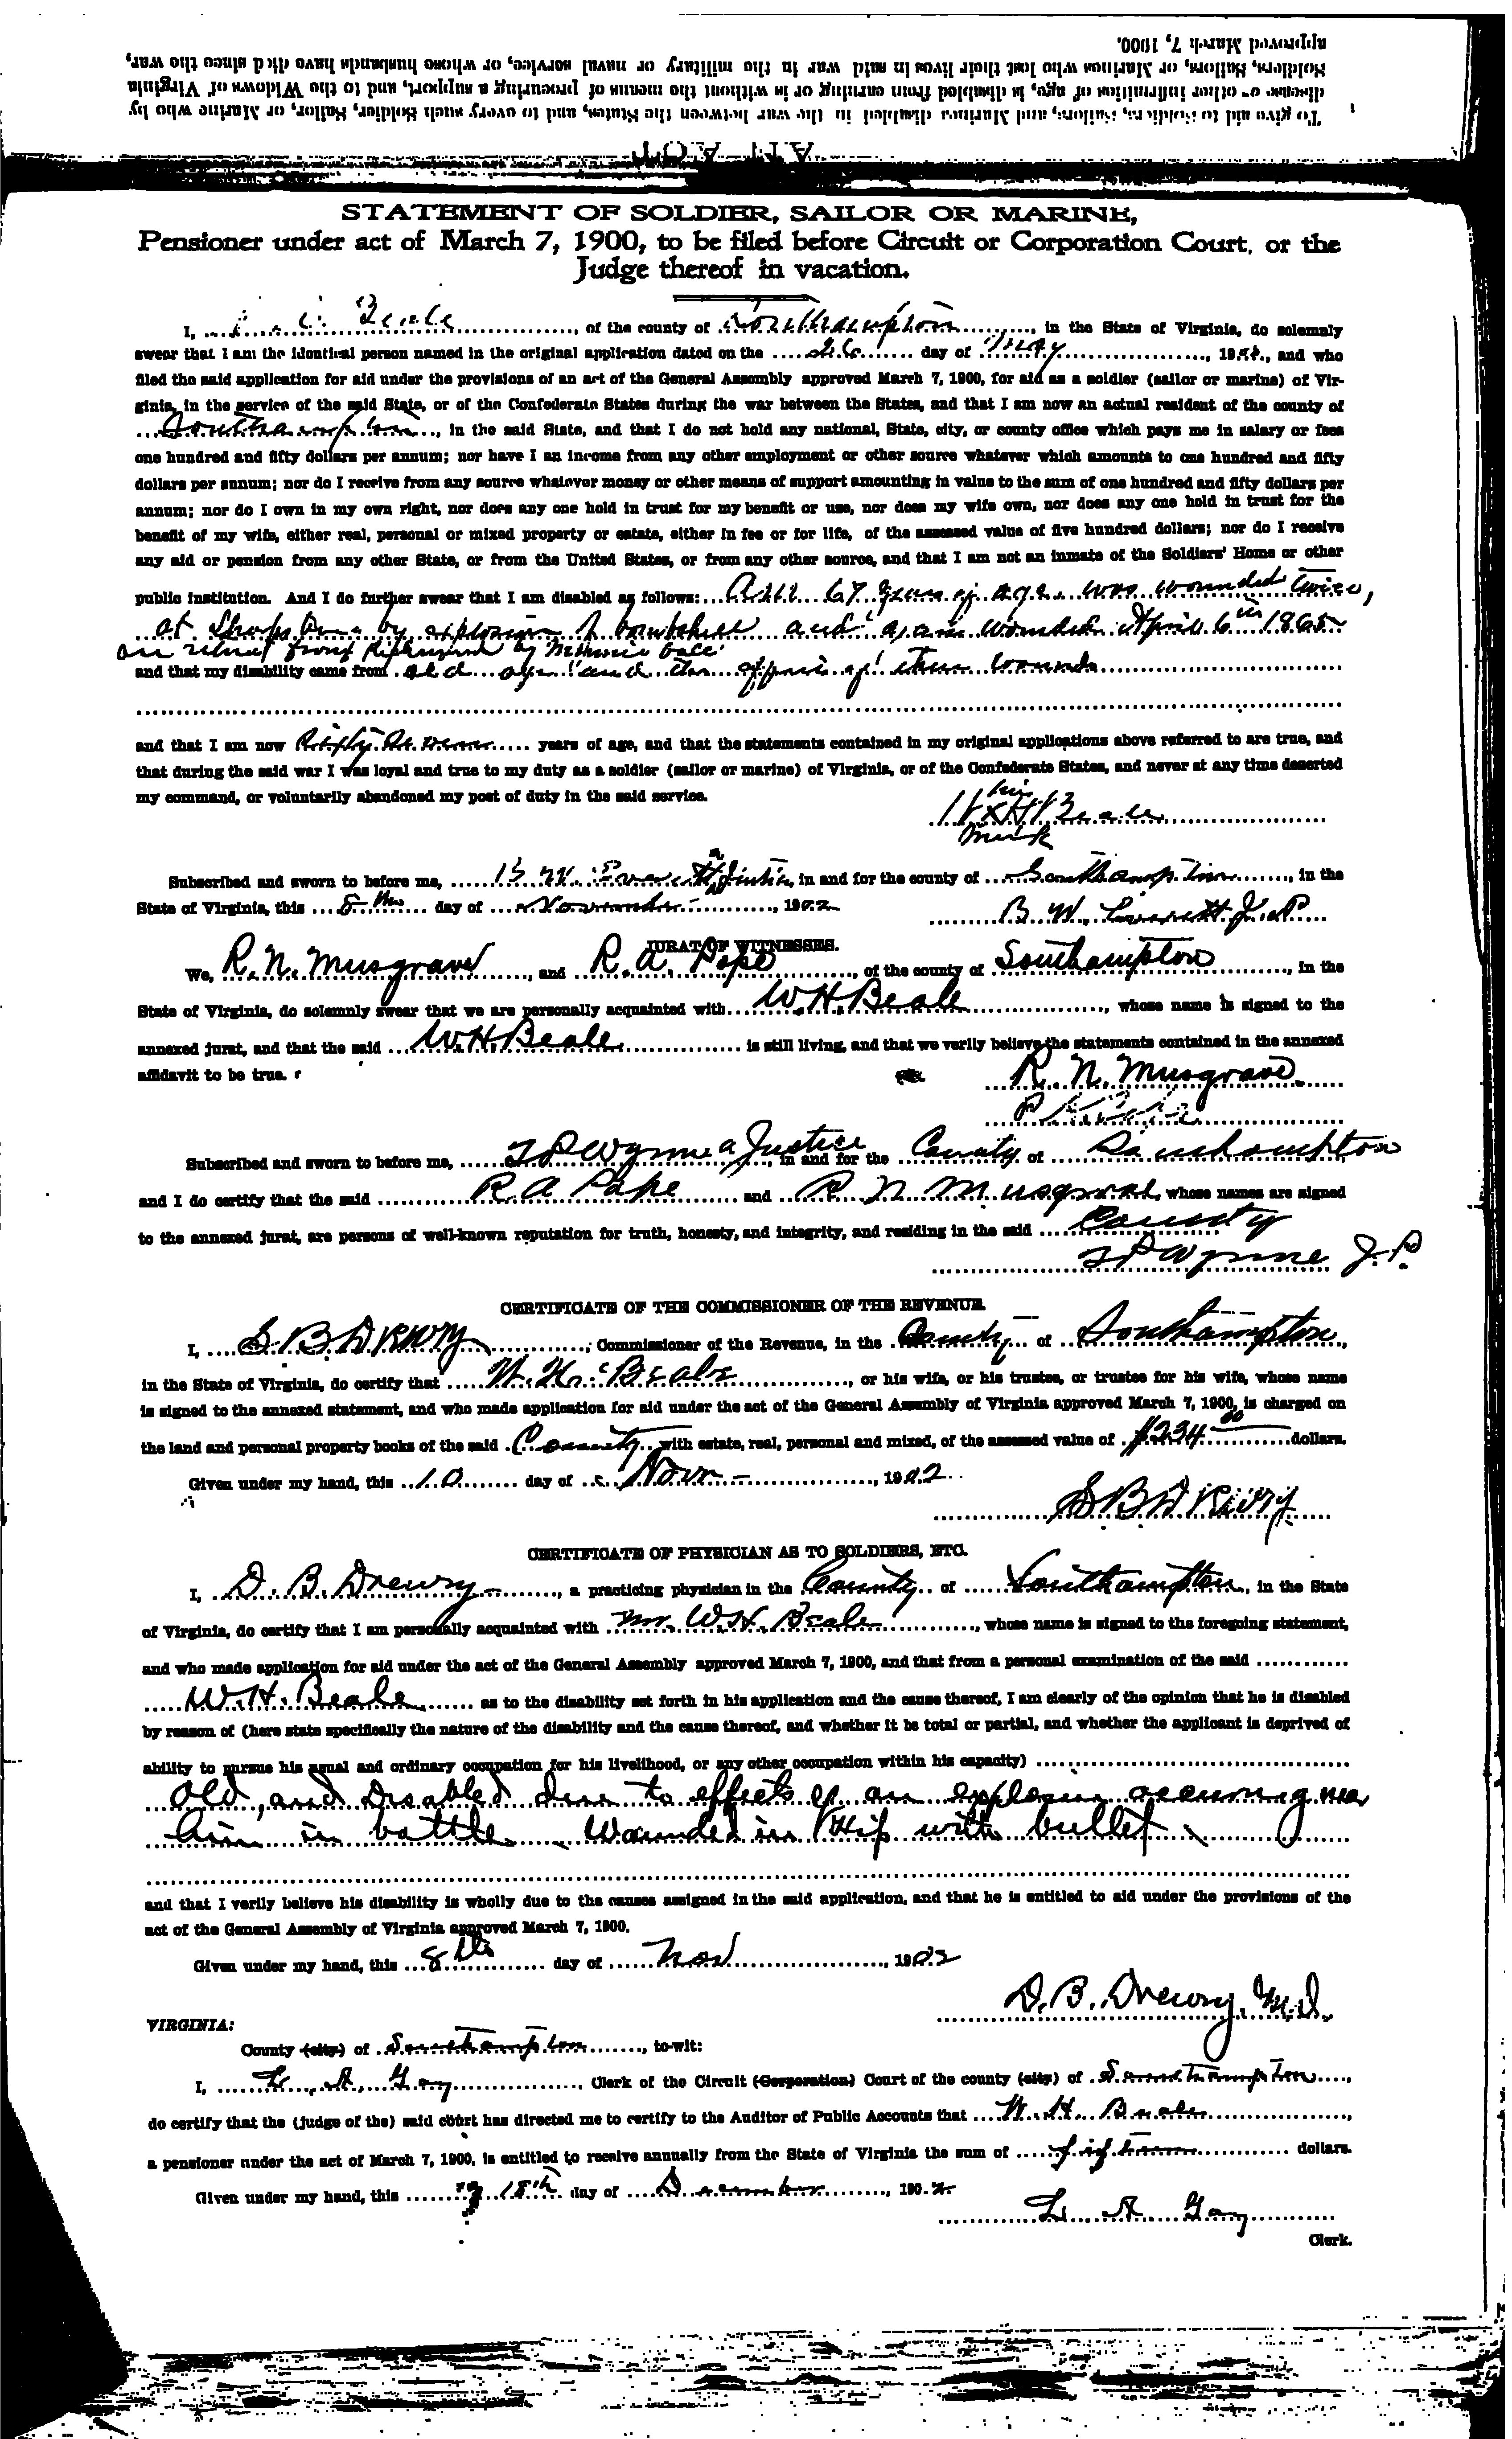 To give aid to Soldiers, Sailors, and Marines disabled in the war between the States, and to every such Soldier, Sailor, or Marine who by
disease or other infirmities of age, is disabled from earning or is without the means of procuring a support, and to the Widows of Virginia
Soldiers, Sailors, or Marines who lost their lives in said war in the military or naval service, or whose husbands have died since the war,
approved March 7, 1900.
STATEMENT OF SOLDIER, SAILOR OR MARINE,
Pensioner under act of March 7, 1900, to be filed before Circuit or Corporation Court, or the
Judge thereof in vacation.
I, Beale, of the county of Southampton, in the State of Virginia, do solemnly
swear that I am the identical person named in the original application dated on the 26 day of May, 19, and who
filed the said application for aid under the provisions of an act of the General Assembly approved March 7, 1900, for aid as a soldier (sailor or marine) of Vir-
ginia, in the service of the said State, or of the Confederate States during the war between the States, and that I am now an actual resident of the county of
Southampton, in the said State, and that I do not hold any national, State, city, or county office which pays me in salary or fees
one hundred and fifty dollars per annum; nor have I an income from any other employment or other source whatever which amounts to one hundred and fifty
dollars per annum; nor do I receive from any source whatever money or other means of support amounting in value to the sum of one hundred and fifty dollars per
annum; nor do I own in my own right, nor does any one hold in trust for my benefit or use, nor does my wife own, nor does any one hold in trust for the
benefit of my wife, either real, personal or mixed property or estate, either in fee or for life, of the assessed value of five hundred dollars; nor do I receive
any aid or pension from any other State, or from the United States, or from any other source, and that I am not an inmate of the Soldiers' Home or other
public institution. And I do further swear that I am disabled as follows: Am 67 years of age. was wounded twice,
at by explosion of bombshell and again wounded April 6th 1865
on retreat from Richmond by Minnie ball
and that my disability came from old age and the effects of these wounds
and that I am now Sixty Seven years of age, and that the statements contained in my original applications above referred to are true, and
that during the said war I was loyal and true to my duty as a soldier (sailor or marine) of Virginia, or of the Confederate States, and never at any time deserted
my command, or voluntarily abandoned my post of duty in the said service.
his
W x H Beale
mark
Subscribed and sworn to before me, B. W. Everett a Justice, in and for the county of Southampton, in the
State of Virginia, this 8th day of November, 1902
B. W. Everett J. P
JURAT OF WITNESSES.
We, R. N. Musgrave, and R. A. Pope, of the county of Southampton, in the
State of Virginia, do solemnly swear that we are personally acquainted with W. H. Beale, whose name is signed to the
annexed jurat, and that the said W. H. Beale is still living, and that we verily believe the statements contained in the annexed
affidavit to be true.
R. N. Musgrave
Subscribed and sworn to before me, Wynne a Justice, in and for the County of Southampton
and I do certify that the said R A Pope and R N Musgrave, whose names are signed
to the annexed jurat, are persons of well-known reputation for truth, honesty, and integrity, and residing in the said County
Wynne J. P.
CERTIFICATE OF THE COMMISSIONER OF THE REVENUE.
I, S. B. Drewry, Commissioner of the Revenue, in the County of Southampton,
in the State of Virginia, do certify that W. H. Beale, or his wife, or his trustee, or trustee for his wife, whose name
is signed to the annexed statement, and who made application for aid under the act of the General Assembly of Virginia approved March 7, 1900, is charged on
the land and personal property books of the said County with estate, real, personal and mixed, of the assessed value of $234 00 dollars.
Given under my hand, this 10 day of Novr, 1902
S B Drewry
CERTIFICATE OF PHYSICIAN AS TO SOLDIERS, ETC.
I, D. B. Drewry, a practicing physician in the County of Southampton, in the State
of Virginia, do certify that I am personally acquainted with Mr. W. H. Beale, whose name is signed to the foregoing statement,
and who made application for aid under the act of the General Assembly approved March 7, 1900, and that from a personal examination of the said
W. H. Beale as to the disability set forth in his application and the cause thereof, I am clearly of the opinion that he is disabled
by reason of (here state specifically the nature of the disability and the cause thereof, and whether it be total or partial, and whether the applicant is deprived of
ability to pursue his usual and ordinary occupation for his livelihood, or any other occupation within his capacity)
Old, and Disabled due to effects of an explosion occuring near
him in battle. Wounded in Hip with bullet.
and that I verily believe his disability is wholly due to the causes assigned in the said application, and that he is entitled to aid under the provisions of the
act of the General Assembly of Virginia approved March 7, 1900.
Given under my hand, this 8th day of Nov, 1902
D. B. Drewry, M. D.
VIRGINIA:
County (city) of Southampton, to-wit:
I, L. A. Gay, Clerk of the Circuit (Corporation) Court of the county (city) of Southampton,
do certify that the (judge of the) said court has directed me to certify to the Auditor of Public Accounts that W. H. Beale,
a pensioner under the act of March 7, 1900, is entitled to receive annually from the State of Virginia the sum of fifteen dollars.
Given under my hand, this 18th day of December, 1902
L. A. Gay
Clerk.